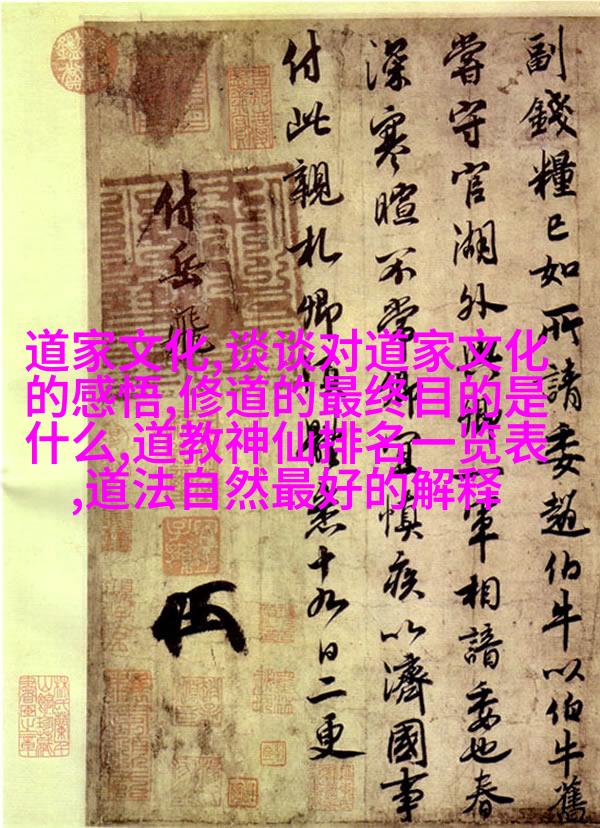 道家文化,谈谈对道家文化
的感悟,修道的最终目的是
什么,道教神仙排名一览表
,道法自然最好的解释
副錢糧已如所請委趙伯牛以伯牛舊
嘗守官湖外與卿一軍相諳委也春
深寒暄不常卿宜慎疾以濟國事
付此親札卿須體悉十九日二更
付岳飛